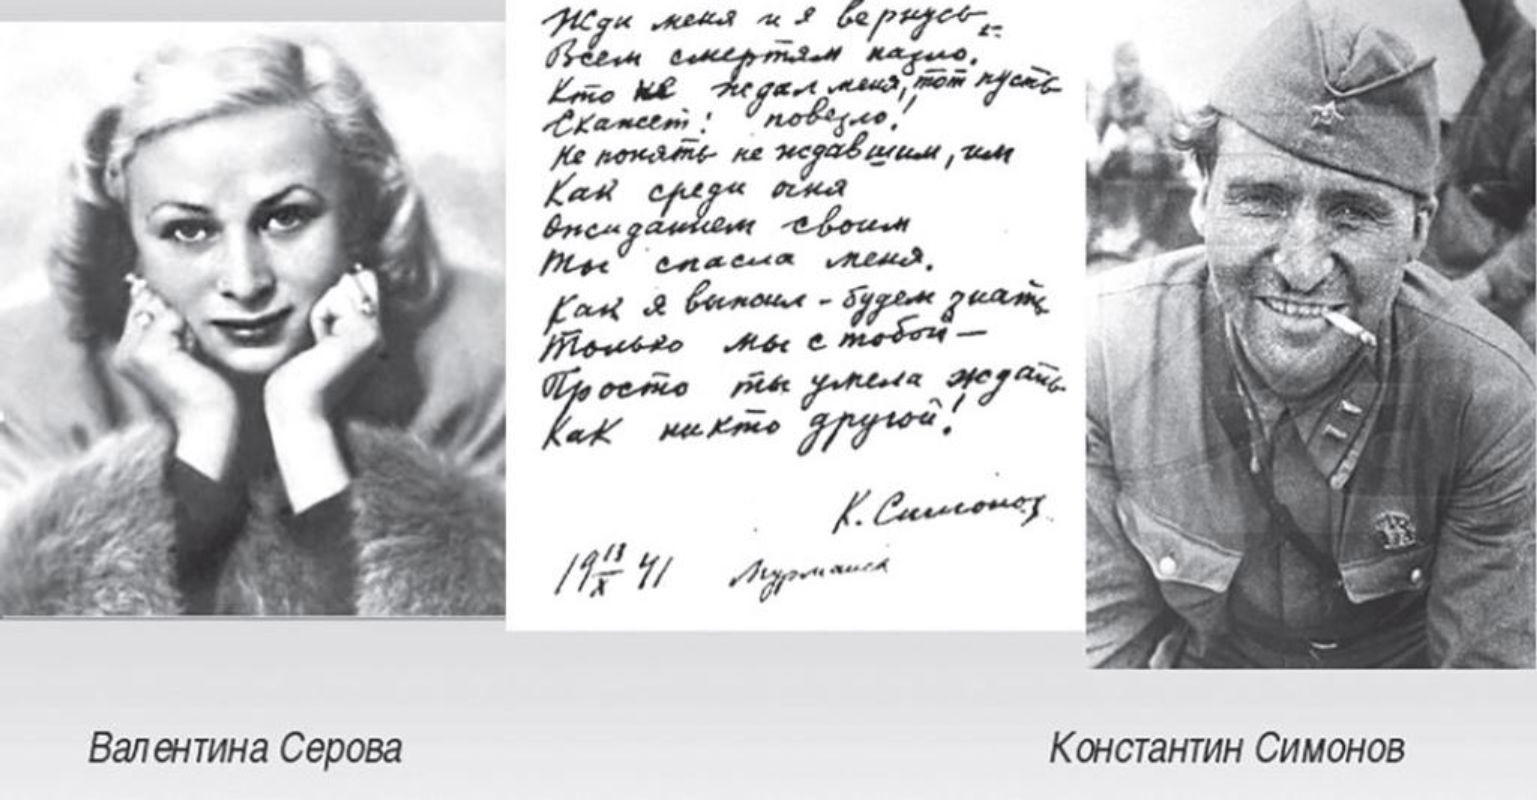 Жди меня и я вернусь
Всем смертям назло.
Кто не ждал меня, тот пусть
Скажет: повезло!
Не понять не ждавшим, им
Как среди огня
Ожиданием своим
Ты спасла меня.
Как я выжил - будем знать
Только мы с тобой —
Просто ты умела ждать
Как никто другой!
К. Симонов
19 18/XI 41 Мурманск
Валентина Серова
Константин Симонов